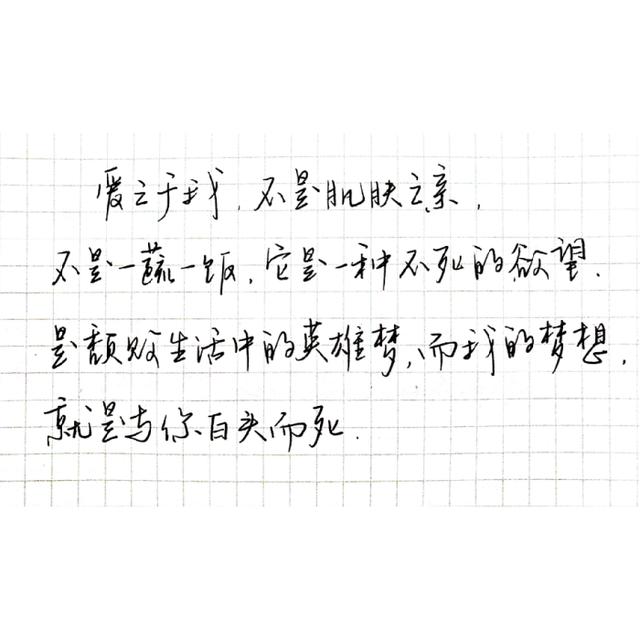 爱之于我,不是肌肤之亲,
不是一蔬一饭,它是一种不死的欲望.
是颓败生活中的英雄梦,而我的梦想,
就是与你白头而死.